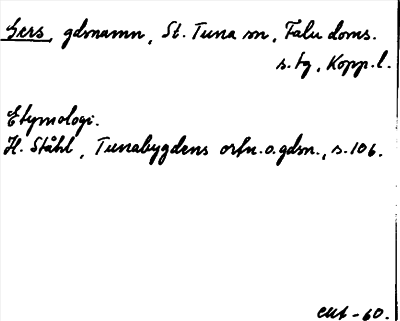 Gers, gdsnamn, St. Tuna sn, Falu doms.
s. tg, Kopp. l.
Etymologi.
H. Ståhl, Tunabygdens ortn. o. gdsn., s. 106.
-60.